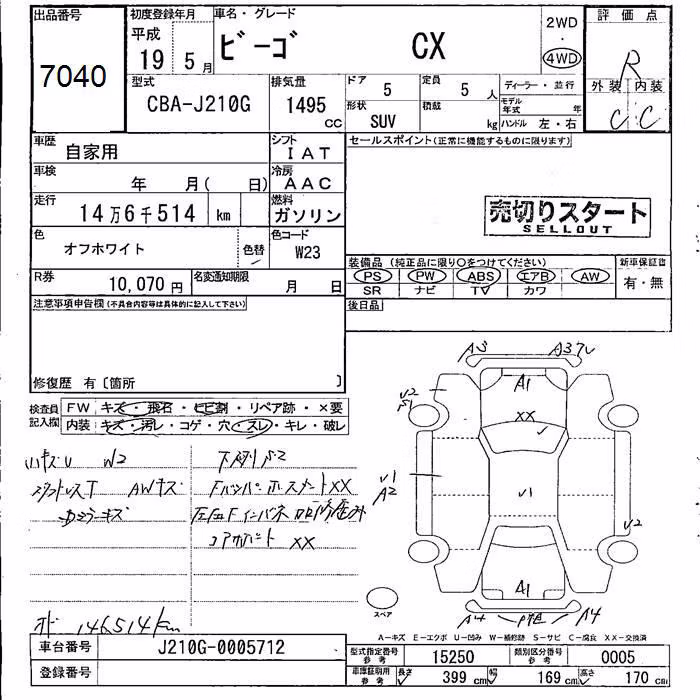 出品番号 初度登録年月 車名・グレード 評価点
7040
平成
19 5月
ビーゴ CX
2WD
・
4WD
R
外装 内装
C C
型式 排気量 ドア 定員 ディーラー・並行
CBA-J210G 1495 cc 5 5人
形状 積載 モデル年式 年
SUV kg ハンドル 左・右
車歴 自家用 シフト IAT
セールスポイント(正常に機能するものに限ります)
車検 年 月( 日) 冷房 AAC
走行 14万6千514 km 燃料 ガソリン
売切りスタート
SELLOUT
色 オフホワイト 色替 色コード W23
装備品 (純正品に限り○をつけてください) 新車保証書
R券 10,070円 名変通知期限 月 日
PS PW ABS エアB AW 有・無
SR ナビ TV カワ
注意事項申告欄(不具合内容等は具体的に記入して下さい)
後日品
修復歴 有〔箇所 〕
検査員記入欄
FW キズ・飛石・ヒビ割・リペア跡・×要
内装 キズ・汚レ・コゲ・穴・スレ・キレ・破レ
A3
A1
XX
V2
V1
A2
V1
V2
A1
A4 A4
スペア
W2
AWキズ
XX
XX
146514km
A-キズ E-エクボ U-凹み W-補修跡 S-サビ C-腐食 XX-交換済
車台番号 J210G-0005712
型式指定番号 参考 15250 類別区分番号 参考 0005
登録番号
車庫証明用 参考 長さ 399 cm 幅 169 cm 高さ 170 cm